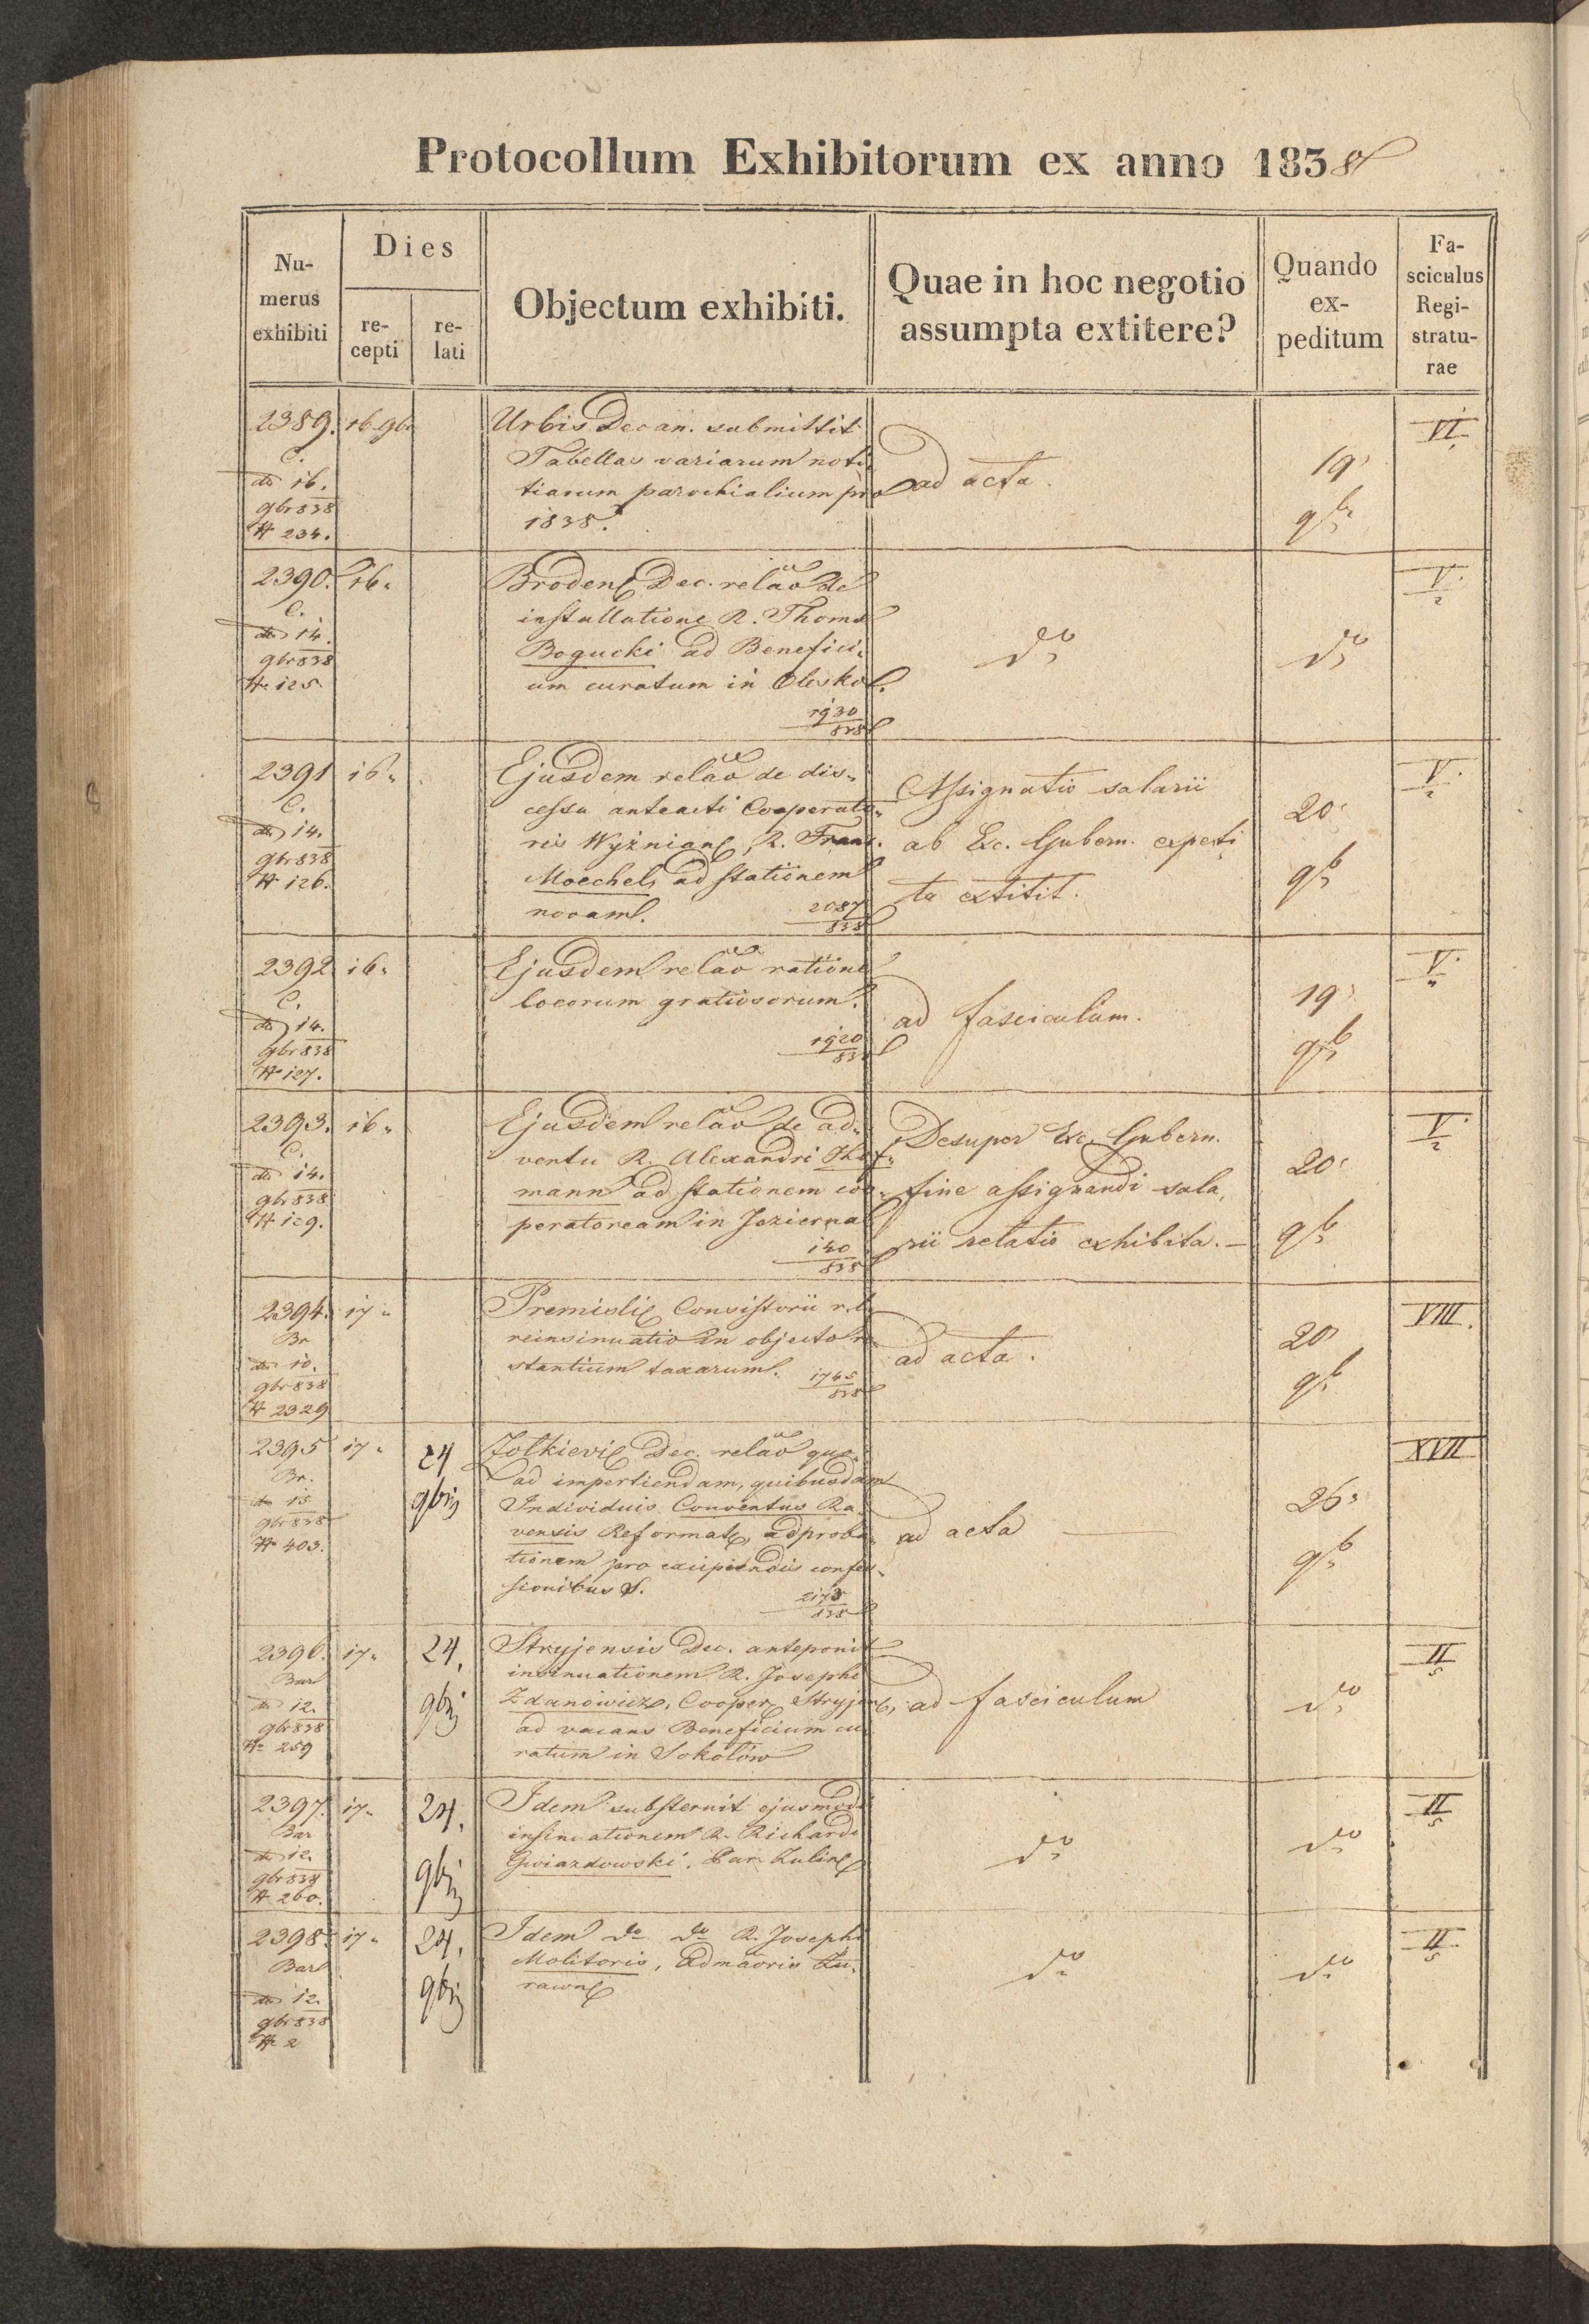 Protocollum Exhibitorum ex anno 1838
Nu-
merus
exhibiti
Dies
re-
cepti
re-
lati
Objectum exhibiti.
Quae in hoc negotio
assumpta extitere?
Quando
ex-
peditum
Fa-
sciculus
Regi-
stratu-
rae
2389.
C.
do 16.
9br 838
N 234.
16 9br
Urbis Decan. submittit
Tabellas variarum noti
tiarum parochialium pro
1838.
ad acta.
19
9br
VI.
2390.
C.
do 14.
9br 838
N 125.
16.
Broden. Dec. relao de
installatione R. Thoma
Bogucki ad Benefici-
um curatum in Olesko.
1930
838
do
do
V.
2
2391
C.
do 14.
9br 838
N 126.
16.
Ejusdem relao de dis-
cessu anteacti Cooperato-
ris Wyżnian, R. Franc.
Moechel, ad stationem
novam.
2087
838
Assignatio salarii
ab Exc. Gubern. expeti
ta extitit.
20
9b
V.
2
2392
C.
do 14.
9br 838
N 127.
16.
Ejusdem relao ratione
locorum gratiosorum.
1920
838
ad fasciculum.
19
9b
V.
2393.
C.
do 14.
9br 838
N 129.
16.
Ejusdem relao de ad-
ventu R. Alexandri
mann ad stationem coo-
peratoream in Jezierna
140
838
Desuper Exc. Gubern.
fine assignandi sala,
rii relatio exhibita.-
20
9b
V.
2
2394.
Br
do 10.
9br 838
N 2329
17.
Premisli. Consistorii r.l.
reinsinuatio in objecto re
stantium taxarum.
1745
838
ad acta.
20
9b
VIII.
2395
Br.
do 15
9br 838
N 403.
17.
24
9bris
Zolkievi. Dec. relao quo
ad impertiendam, quibusdam
Individuis Conventus Ra
vensis Reformat, adproba-
tionem pro excipiendis confes-
sionibus S.
2173
838
ad acta
26
9b
XVII
2396.
Bar
do 12.
9br 838
N 259
17.
24,
9bris
Stryjensis Dec. anteponit
insinuationem R. Josephi
Zdanowicz, Cooper. Stryjen,
ad vacans Beneficium cu
ratum in Sokołów
ad fasciculum
do
II
5
2397.
Bar
do 12.
9br 838
N 260.
17.
24.
9bris
Idem substernit ejusmodi
insinuationem R. Richardi
Gwiazdowski, Par. Zulin
do
do
II
5
2398.
Bar
do 12.
9br 838
N 2
17.
24.
9bris
Idem do do R. Josephi
Molitoris, Admaoris Zu,
rawn
do
do
II
5